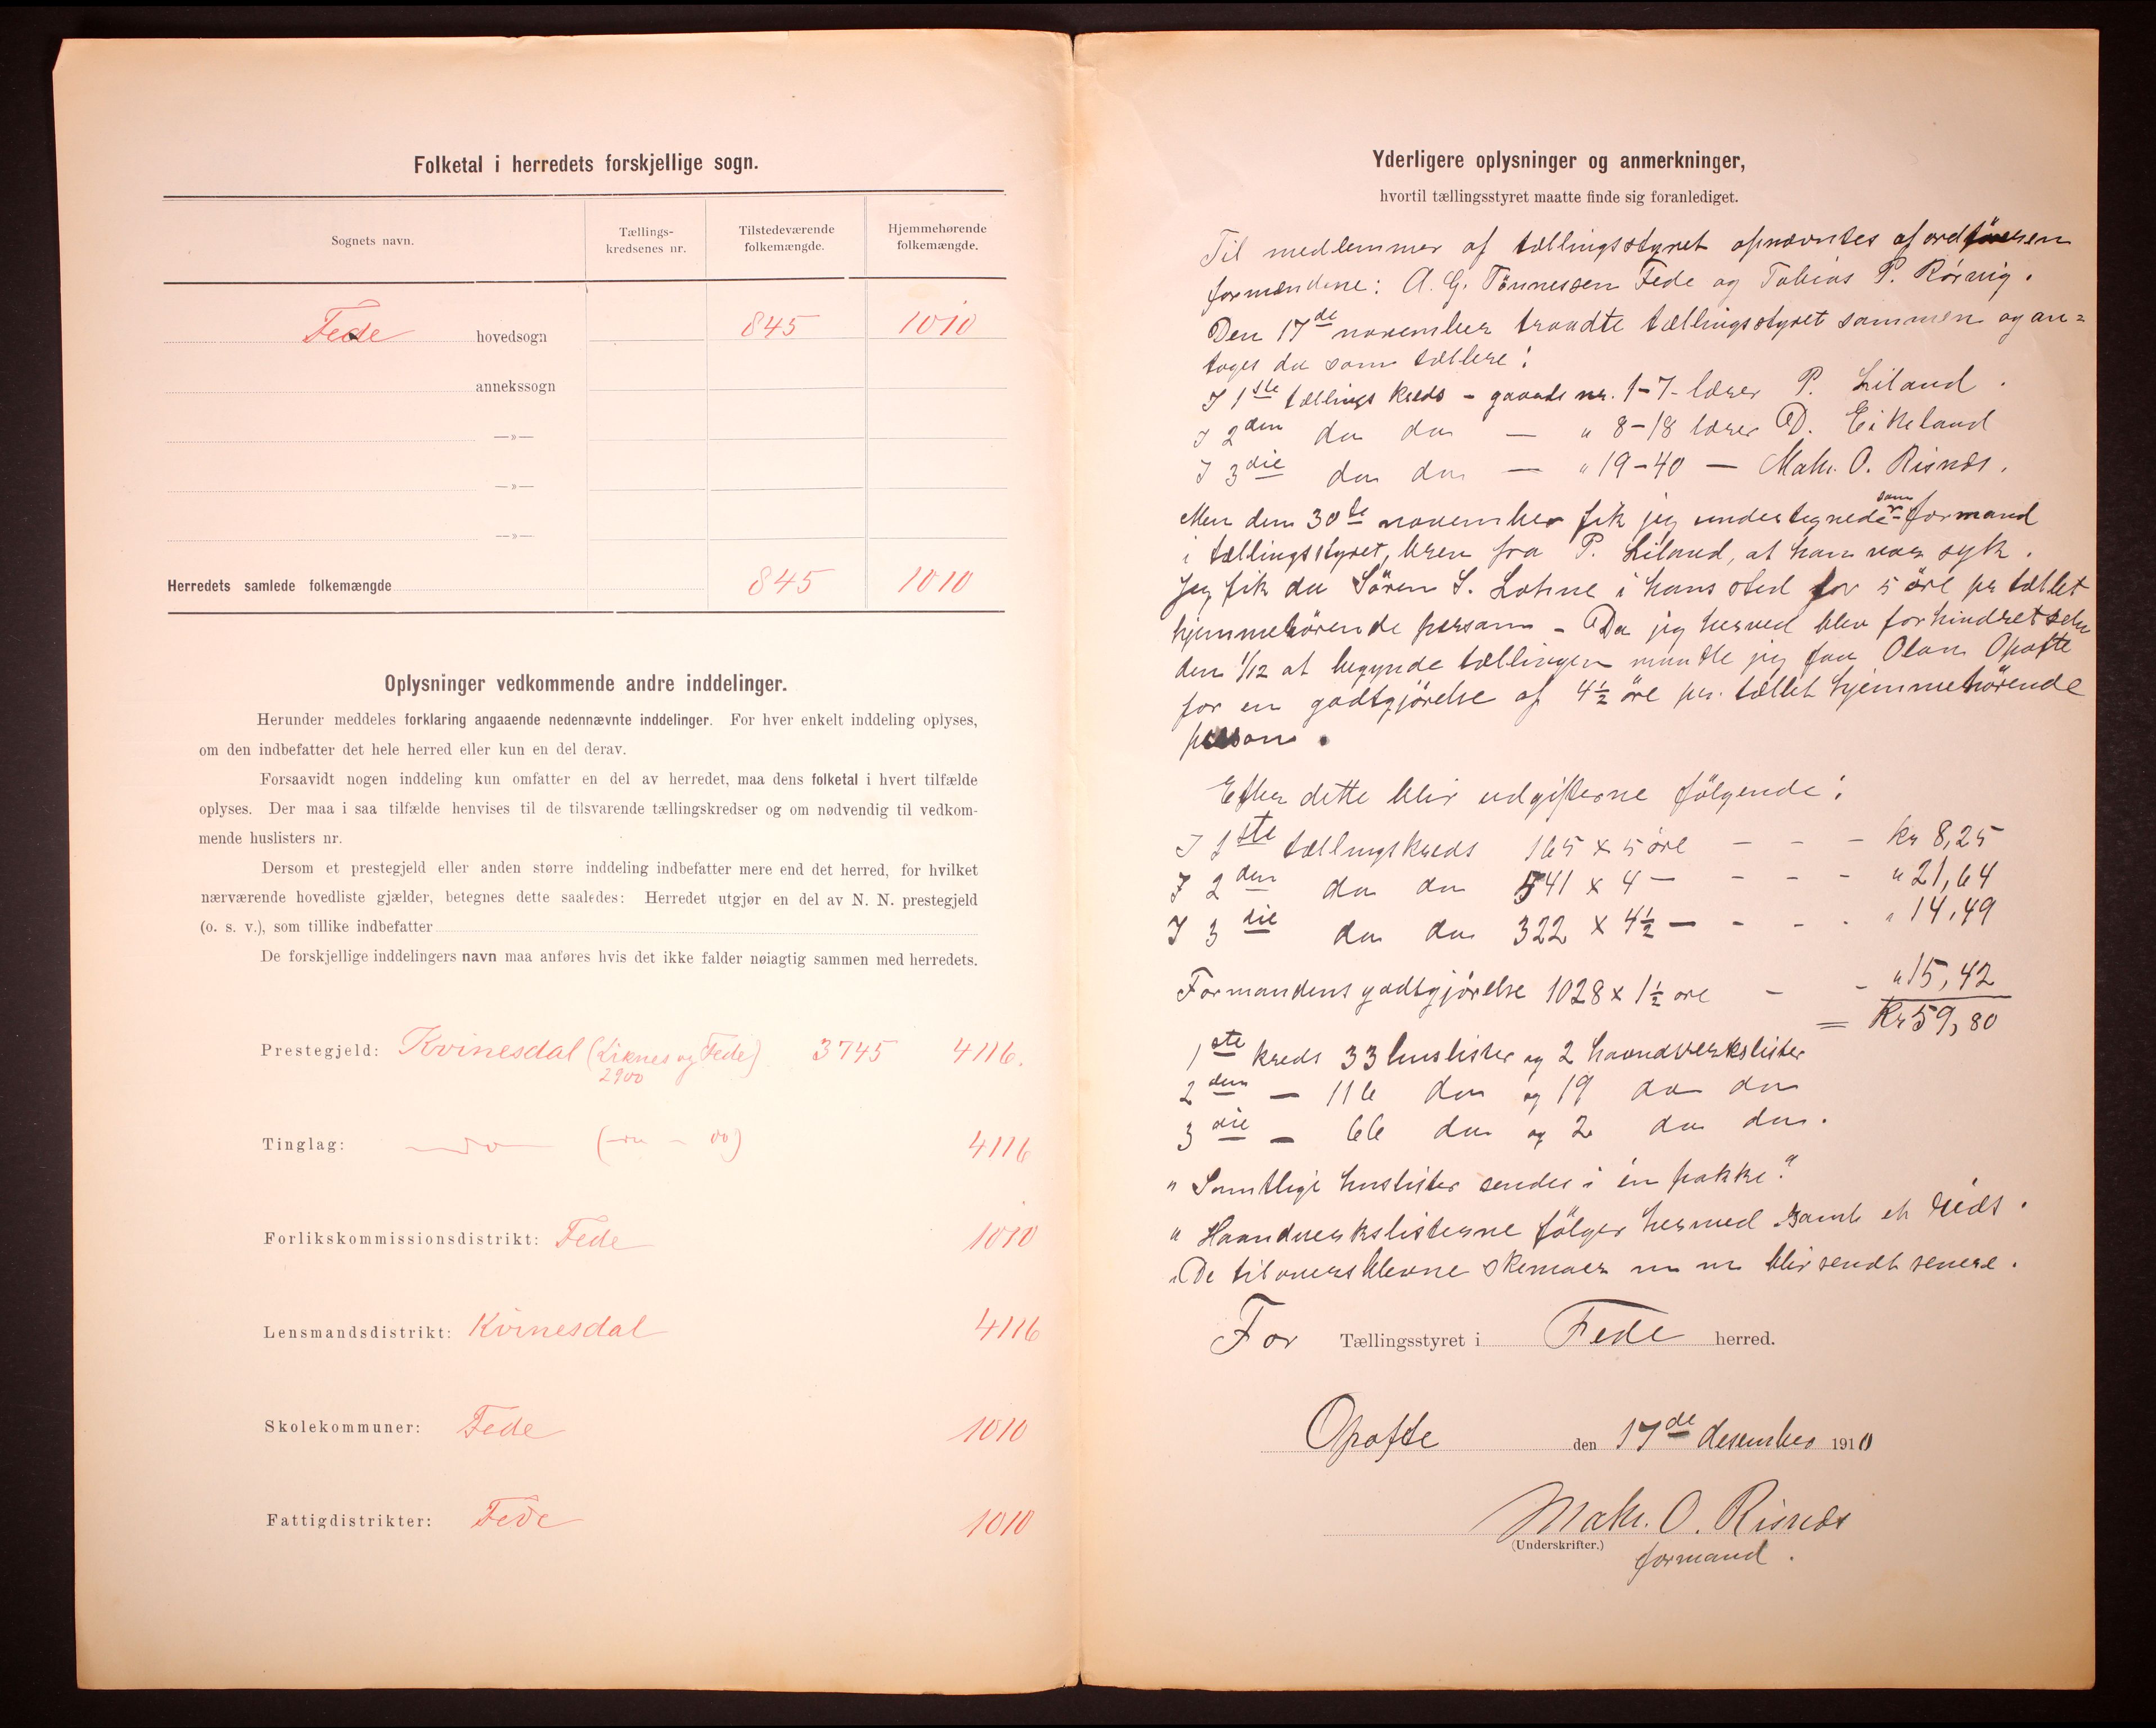 Folketal i herredets forskjellige sogn.
Sognets navn.
Tællings-
kredsenes nr.
Tilstedeværende
folkemængde.
Hjemmehørende
folkemængde.
Fede hovedsogn 845 1010
annekssogn
—»—
—»—
—»—
Herredets samlede folkemængde 845 1010
Oplysninger vedkommende andre inddelinger.
Herunder meddeles forklaring angaaende nedennævnte inddelinger. For hver enkelt inddeling oplyses,
om den indbefatter det hele herred eller kun en del derav.
Forsaavidt nogen inddeling kun omfatter en del av herredet, maa dens folketal i hvert tilfælde
oplyses. Der maa i saa tilfælde henvises til de tilsvarende tællingskredser og om nødvendig til vedkom-
mende huslisters nr.
Dersom et prestegjeld eller anden større inddeling indbefatter mere end det herred, for hvilket
nærværende hovedliste gjælder, betegnes dette saaledes: Herredet utgjør en del av N. N. prestegjeld
(o. s. v.), som tillike indbefatter
De forskjellige inddelingers navn maa anføres hvis det ikke falder nøiagtig sammen med herredets.
Prestegjeld: Kvinesdal (Liknes og Fede) 3745 4116.
2900
Tinglag: — do — 4116
Forlikskommissionsdistrikt: Fede 1010
Lensmandsdistrikt: Kvinesdal 4116
Skolekommuner: Fede 1010
Fattigdistrikter: Fede 1010
Yderligere oplysninger og anmerkninger,
hvortil tællingsstyret maatte finde sig foranlediget.
Til medlemmer af tællingsstyret opnævntes af ordføreren
formændene: A. G. Tönnessen Fede og Tobias P. Rörvig.
Den 17de november traadte tællingsstyret sammen og an=
toges da som tællere:
I 1ste tællings kreds - gaards nr. 1-7- lærer P. Liland.
I 2den do do — " 8-18 lærer D. Eikeland
I 3die do do — " 19-40 — Math. O. Risnæs.
Men den 30te november fik jeg undertegnede som formand
i tællingsstyret, brev fra P. Liland, at han var syk.
Jeg fik da Sören S. Lohne i hans sted for 5 öre pr tællet
hjemmehörende person - Da jeg herved blev forhindret selv
den 1/12 at begynde tællingen maatte jeg faa Olau Opofte
for en godtgjörelse af 4½ öre pr. tællet hjemmehörende
person.
Efter dette blir udgifterne fölgende:
I 1ste tællingskreds 165 x 5 öre - - - kr 8,25
I 2den do do 541 x 4 — - - - " 21,64
I 3die do do 322 x 4½ — - - - " 14,49
Formandens godtgjörelse 1028 x 1½ öre - - " 15,42
= Kr 59,80
1ste kreds 33 huslister og 2 haandverkslister
2den — 116 do og 19 do do
3die — 66 do og 2 do do.
" Samtlige huslister sendes i én pakke."
" Haandverkslisterne fölger hermed samt et
" De tiloversblevne skemaer blir sendt senere.
For Tællingsstyret i Fede herred.
Opofte den 17de desember 1910
Math. O. Risnæs
(Underskrifter.)
formand.